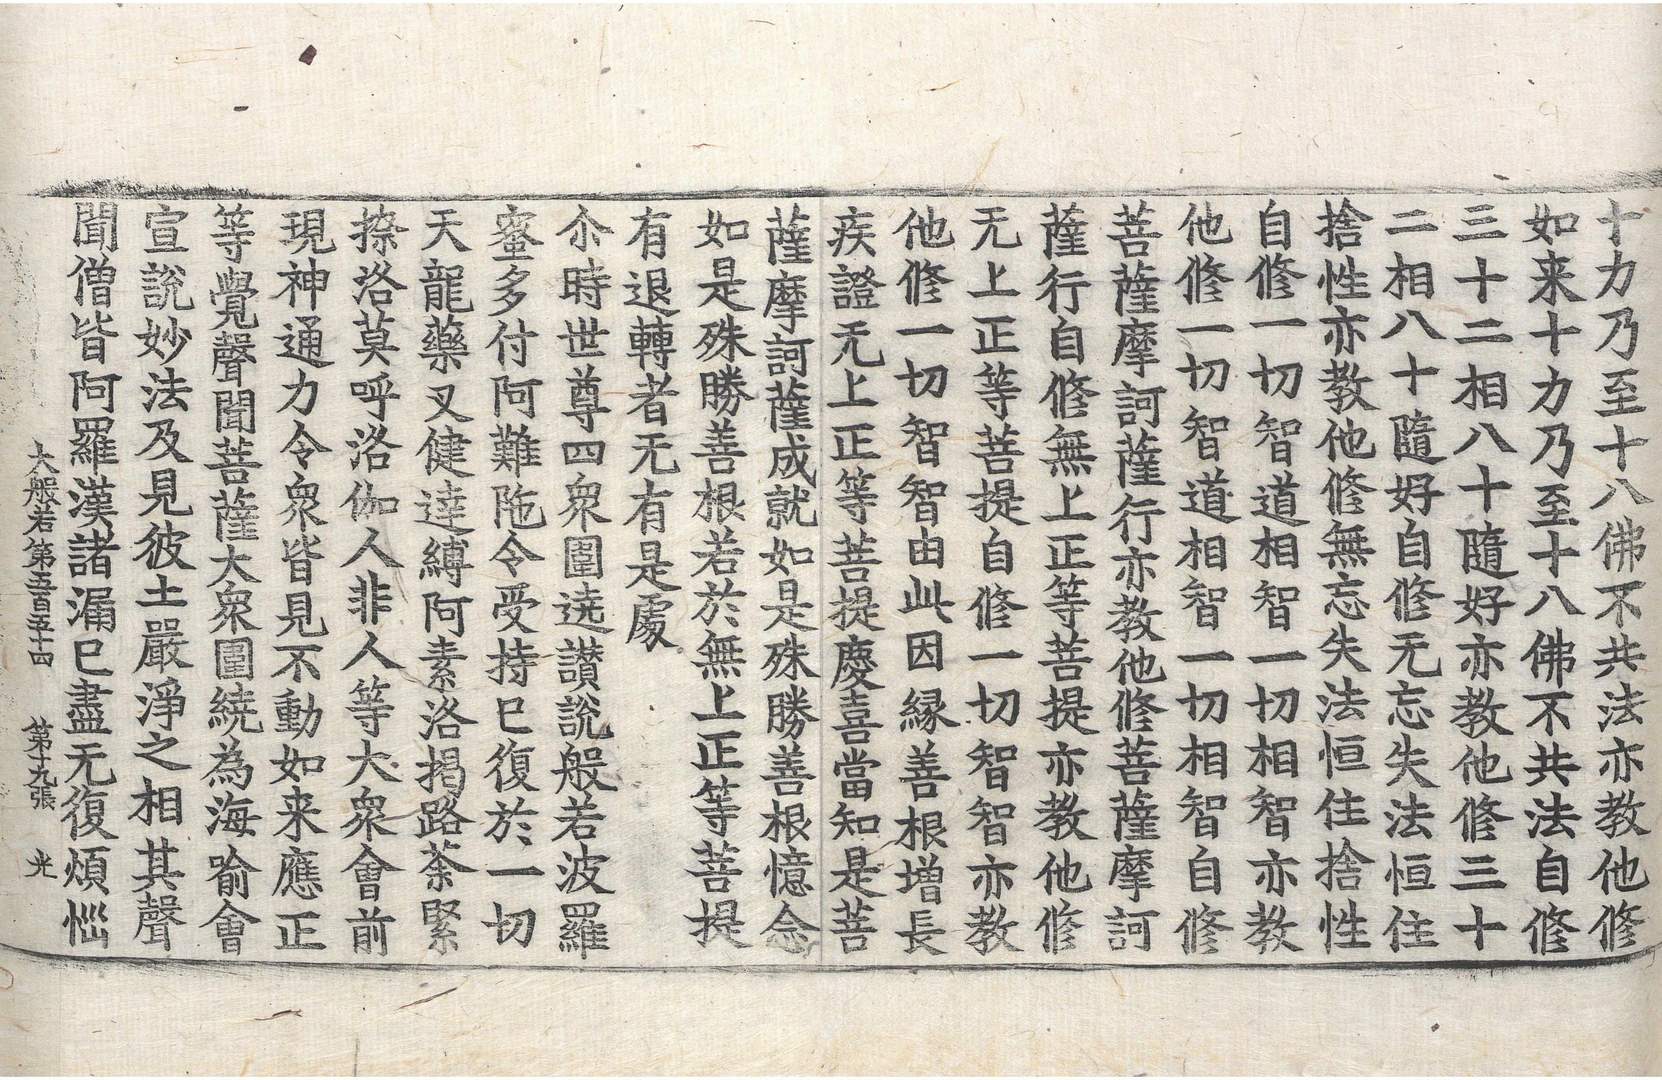 十力乃至十八佛不共法亦教他修
如来十力乃至十八佛不共法自修
三十二相八十隨好亦教他修三十
二相八十隨好自修无忘失法恒住
捨性亦教他修無忘失法恒住捨性
自修一切智道相智一切相智亦教
他修一切智道相智一切相智自修
菩薩摩訶薩行亦教他修菩薩摩訶
薩行自修無上正等菩提亦教他修
无上正等菩提自修一切智智亦教
他修一切智智由此因緣善根增長
疾證无上正等菩提慶喜當知是菩
薩摩訶薩成就如是殊勝善根憶念
如是殊勝善根若於無上正等菩提
有退轉者无有是處
尒時世尊四衆圍遶讃說般若波羅
蜜多付阿難陁令受持已復於一切
天龍藥叉健達縛阿素洛揭路荼緊
捺洛莫呼洛伽人非人等大衆會前
現神通力令衆皆見不動如来應正
等覺聲聞菩薩大衆圍繞為海喻會
宣說妙法及見彼土嚴淨之相其聲
聞僧皆阿羅漢諸漏已盡无復煩惱
大般若第五百五十四 第十九張 光